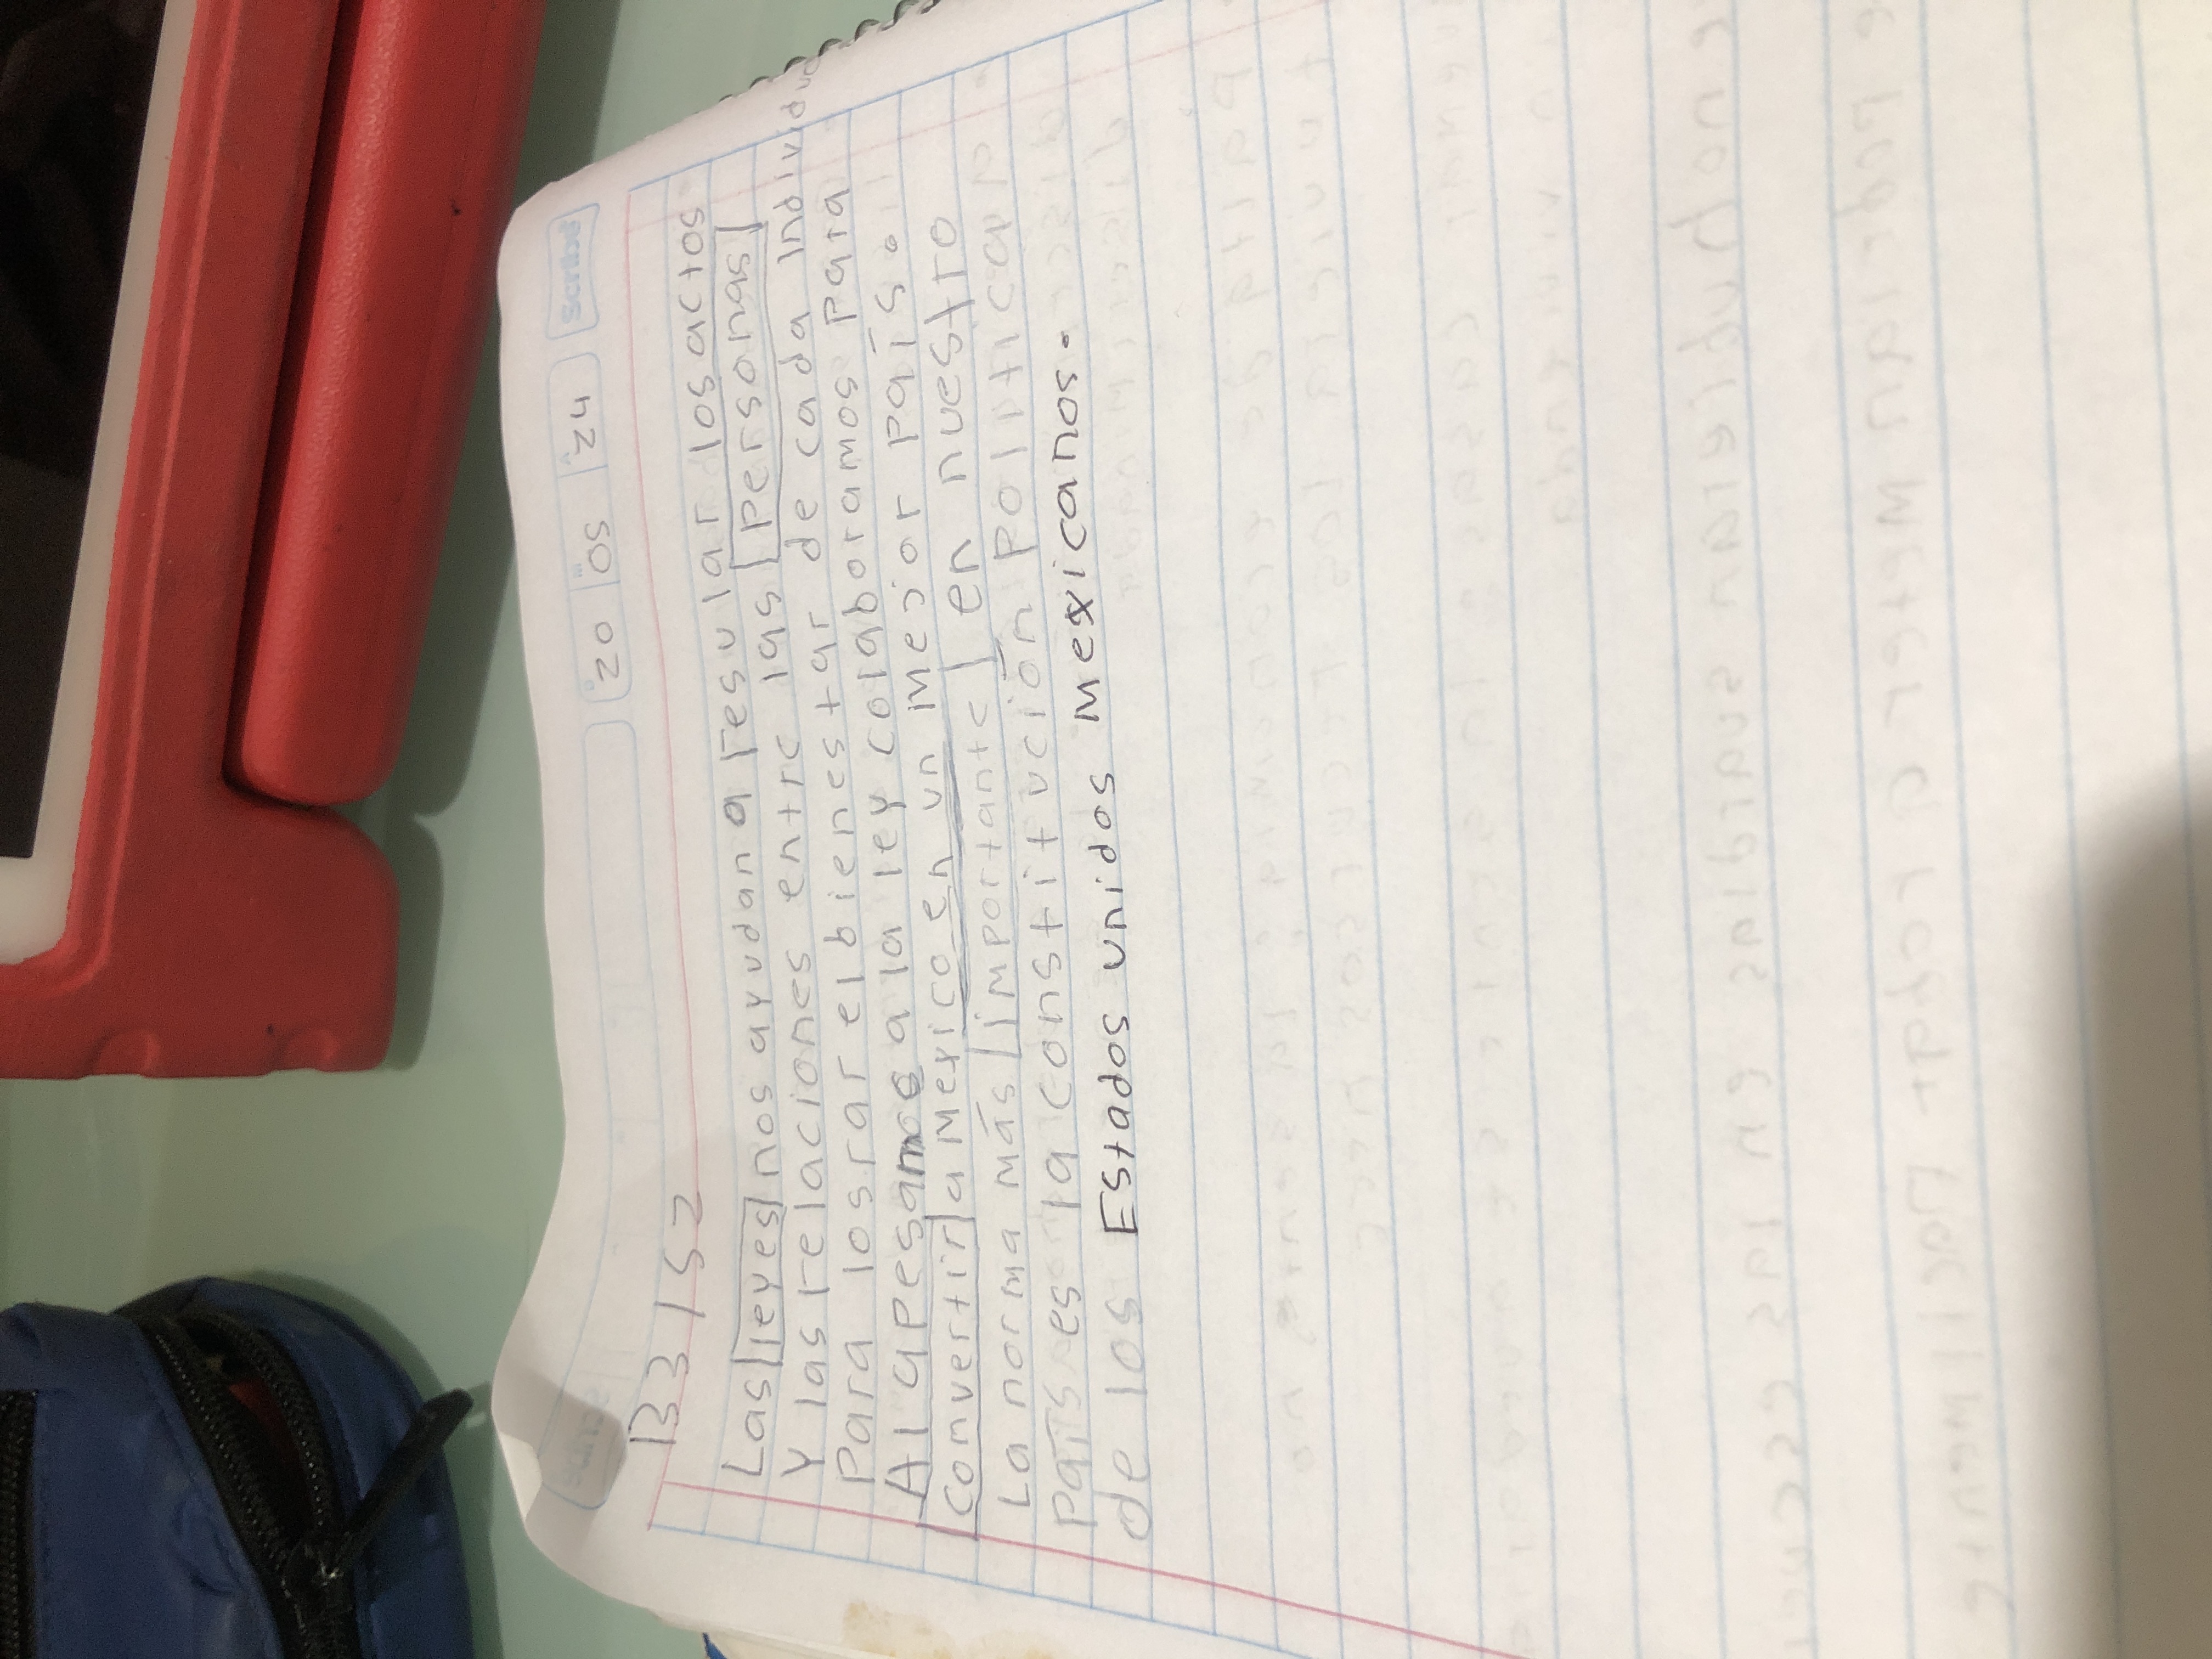 Scribe
20 05 24
B3 152
Las leyes nos ayudan a resular los actos
Y las relaciones entre las personas
Para losrar el bienestar de cada individuo
Al apesarnos a la ley colaboramos para
convertir a mexico en un mejor país.
La norma más importante en nuestro
País es la constitución política
de los Estados unidos mexicanos.